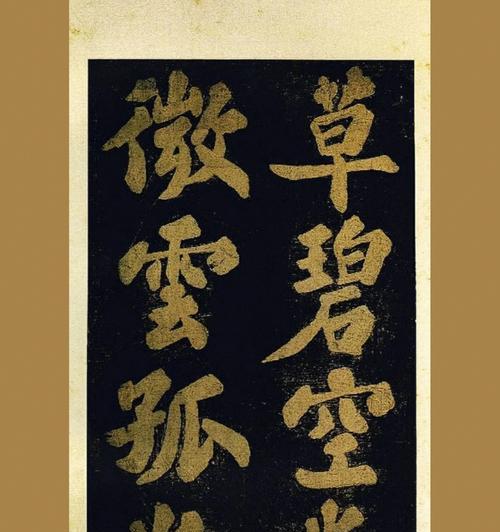 草碧空
微雲孤